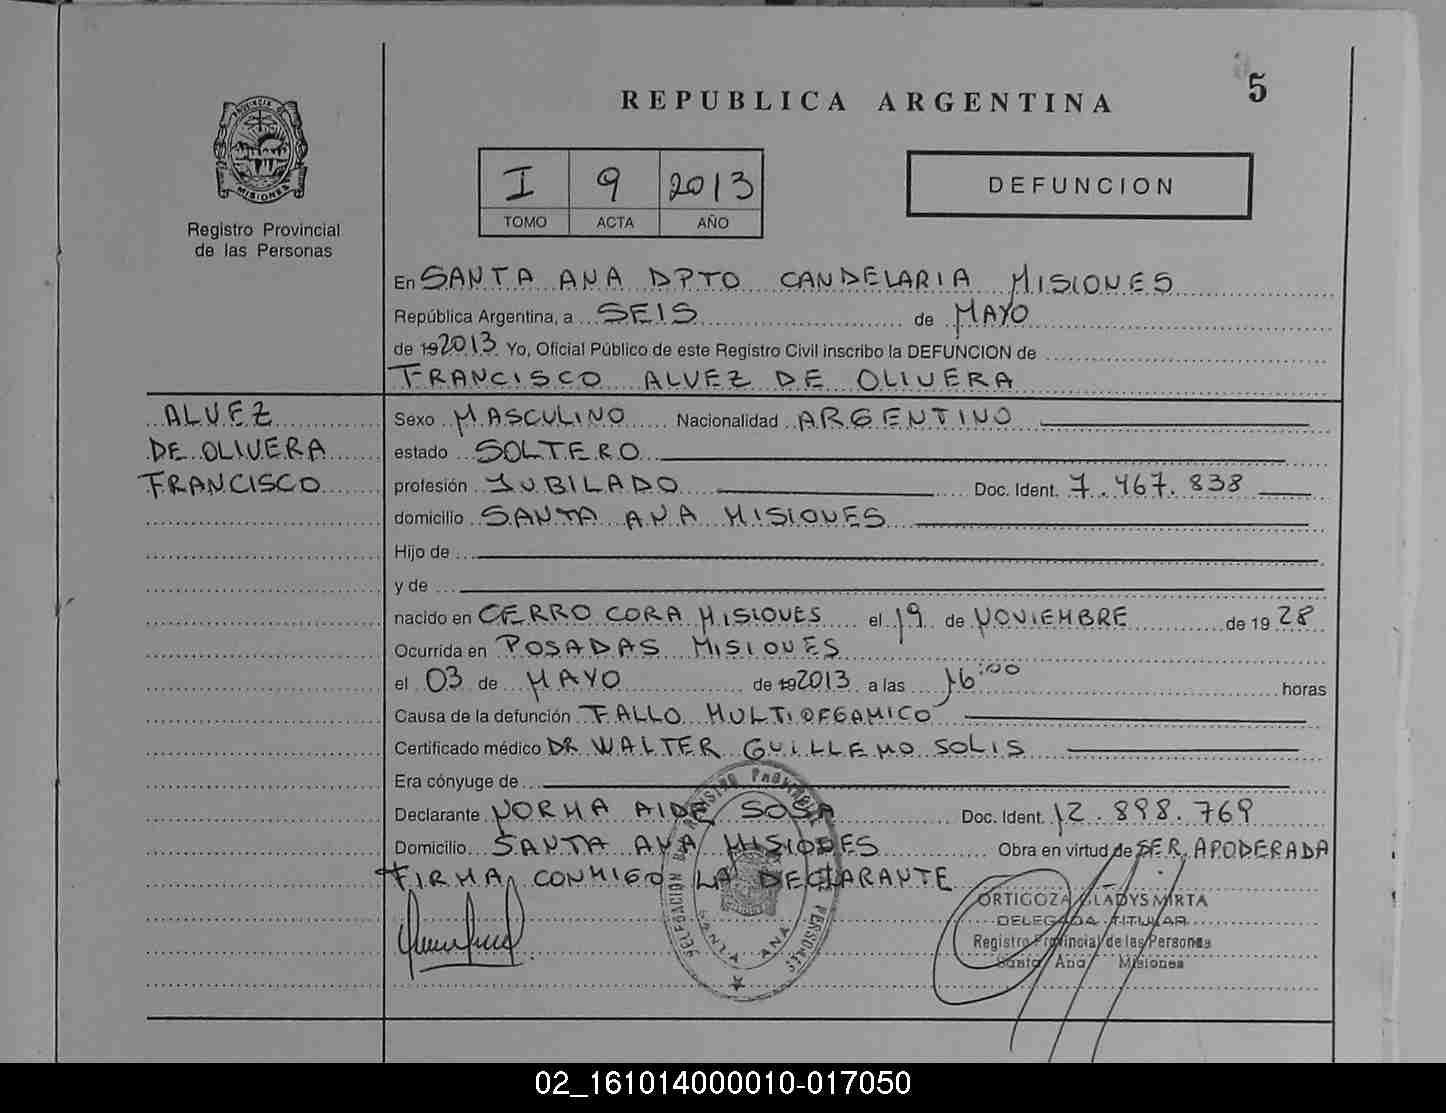 5
REPUBLICA ARGENTINA
PROVINCIA DE
MISIONES
Registro Provincial
de las Personas
I 9 2013
TOMO ACTA AÑO
DEFUNCION
En SANTA ANA DPTO CANDELARIA MISIONES
República Argentina, a SEIS de MAYO
de 192013 Yo, Oficial Público de este Registro Civil inscribo la DEFUNCION de
FRANCISCO ALVEZ DE OLIVERA
ALVEZ
DE OLIVERA
FRANCISCO
Sexo MASCULINO Nacionalidad ARGENTINO
estado SOLTERO
profesión JUBILADO Doc. Ident. 7.467.838
domicilio SANTA ANA MISIONES
Hijo de
y de
nacido en CERRO CORA MISIONES el 19 de NOVIEMBRE de 19 28
Ocurrida en POSADAS MISIONES
el 03 de MAYO de 192013 a las 16:00 horas
Causa de la defunción FALLO MULTIORGAMICO
Certificado médico DR WALTER GUILLEMO SOLIS
Era cónyuge de
Declarante NORMA AIDE SOSA Doc. Ident. 12.898.769
Domicilio SANTA ANA MISIONES Obra en virtud de SER APODERADA
FIRMA CONMIGO LA DECLARANTE
ORTIGOZA GLADYS MIRTA
DELEGADA TITULAR
Registro Provincial de las Personas
Santa Ana Misiones
SANTA ANA
02_161014000010-017050